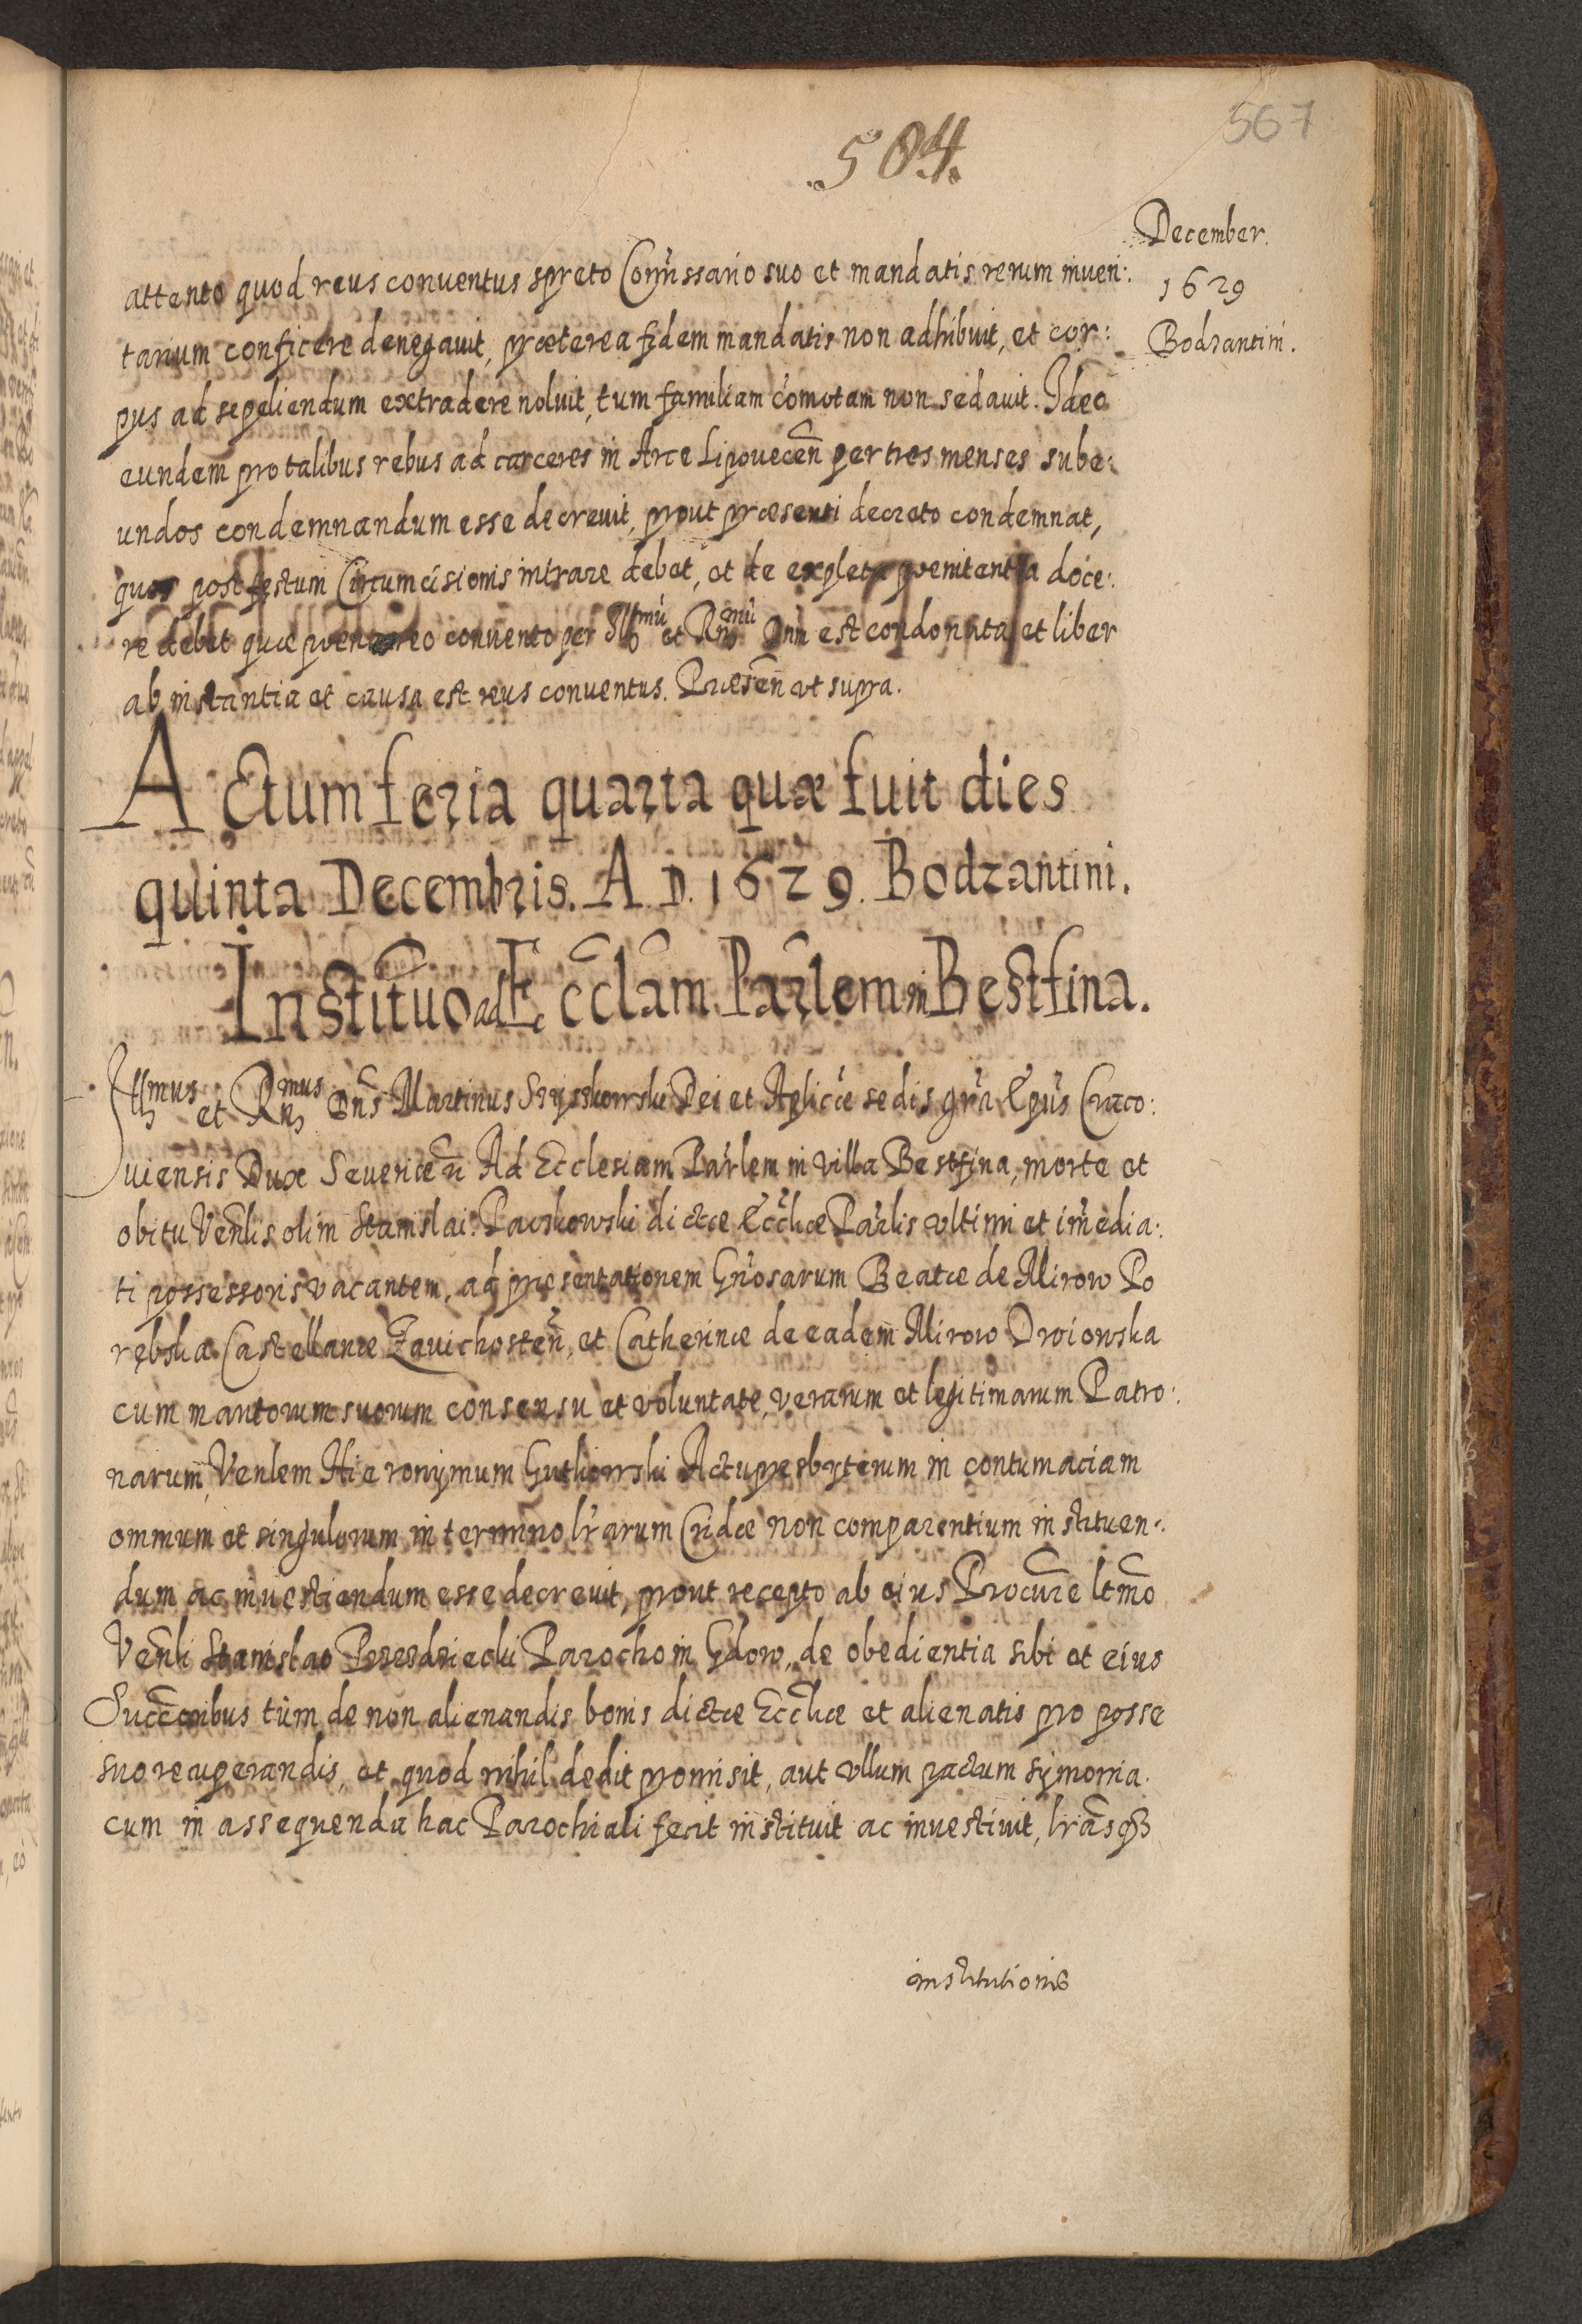 567
.504.
December.
1629
Bodzantini.
attento quod reus conuentus spreto Com̃issario suo et mandatis rerum inuen:
tarium conficere denegauit, præterea fidem mandatis non adhibuit, et cor:
pus ad sepeliendum extradere noluit, tum familiam com̃otam non sedauit. Ideo
eundem pro talibus rebus ad carceres in Arce Lipouecen̄ per tres menses sube:
undos condemnandum esse decreuit, prout præsenti decreto condemnat,
quos post festum Circumcisionis intrare debet, et de expleta pænitentia doce:
re debet quæ pæna reo conuento per Illmũ et Rmũ Dnũ est condonata et liber
ab instantia et causa est reus conuentus. Præsen̄ ut supra.
Actum feria quarta quæ fuit dies
quinta Decembris. A. D. 1629. Bodzantini.
Institutio ad Ecclam Parlem in Bestfina.
Illmus et Rmus Dns Martinus Szyszkowski Dei et Aplicæ sedis grã Epũs Craco:
uiensis Dux Seueriæn̄ Ad Ecclesiam Parlem in villa Bestfina, morte et
obitu Venlis olim Stanislai Paiskowski dictæ Eccliæ Parlis vltimi et im̃edia:
ti possessoris vacantem, ad præsentationem Gnosarum Beatæ de Mirow Po
rębska Castellanæ Zauichosten̄, et Catherinæ de eadem Mirow Droiowska
cum maritorum suorum consensu et voluntate, verarum et legitimarum Patro:
narum, Venlem Hieronijmum Gutkowski Actupresbyterum in contumaciam
omnium et singulorum in termino lrarum Cridæ non comparentium instituen:
dum ac inuestiendum esse decreuit, prout recepto ab eius Procure ltmo
Venli Stanislao Parocho in Gdow, de obedientia sibi et eius
Succcoribus tum de non alienandis bonis dictæ Eccliæ et alienatis pro posse
suo recuperandis, et quod nihil dedit promisit, aut vllum pactum symonia:
cum in assequenda hac Parochiali fecit instituit ac inuestiuit, lrasqȝ
institutionis